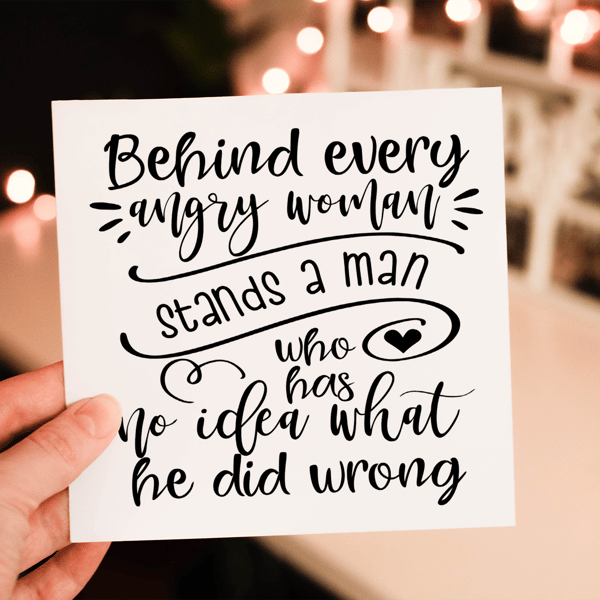 Behind every
angry woman
stands a man
who
has
no idea what
he did wrong